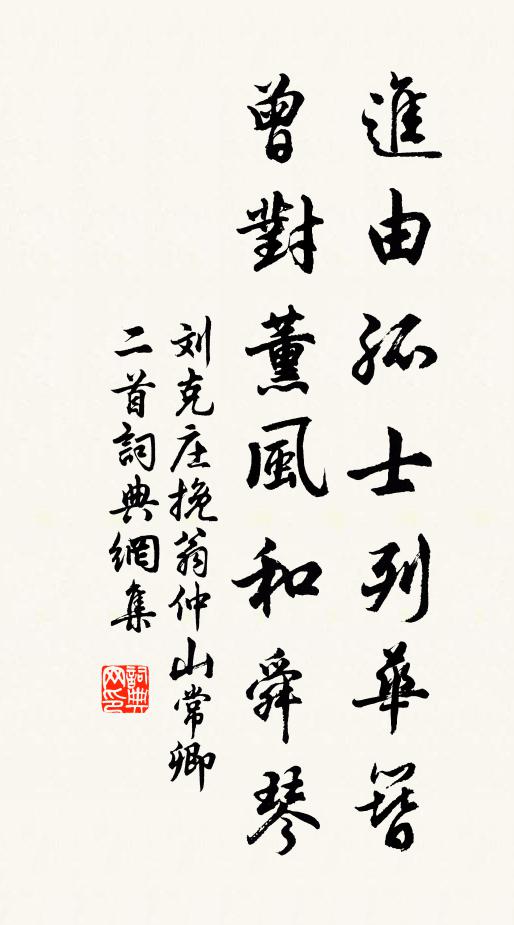 進由孤士列華簪
曾對薰風和舜琴
刘克庄挽翁仲山常卿
二首詞典網集
詞典
网印